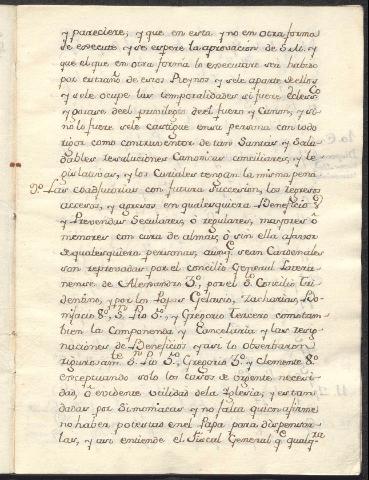 y pareciere, y que en esta, y no en otra forma
se execute y se espere la aprovacion de S. M. y
que el que en otra forma lo executare sea habido
por estraño de estos Reynos y se le aparte de ellos
y se le ocupe las temporalidades si fuere Eclesco
y gozare del privilegio del fuero y Canon, y si
no lo fuere se le castigue en su persona con todo
rigor como contraventor de tan Santas y Salu
dables resoluciones Canonicas conciliares, y le
gislativas, y los Curiales tengan la misma pena
Las coadjutorias con futura succesion, los regresos
accesos, y agresos en qualesquiera Beneficios
y Prevendas Seculares, ó regulares, mayores ó
menores con cura de almas, ó sin ella a favor
de qualesquiera personas, aunq. sean Cardenales
son reprovadas por el concilio General Latera
nense de Alexandro 3º, por el Sto. Concilio Tri
dentino, y por los Papas Gelasio, Zacharias, Bo
nifacio 8º, Sn. Pio 5º, y Gregorio Tercero como tam
bien la Componenda y Cancelaria y las resig
naciones de Beneficios y asi lo observaron
rigurosamte. Sn. Pio 5º, Gregorio 3º y Clemente 8º
conceptuando solo los casos de urgente necesi
dad, ó evidente utilidad de la Iglesia, y estan
dadas por Simoniacas y no falta quien afirme
no haber potestad en el Papa para dispensar
las, y asi entiende el Fiscal General q. qualqra